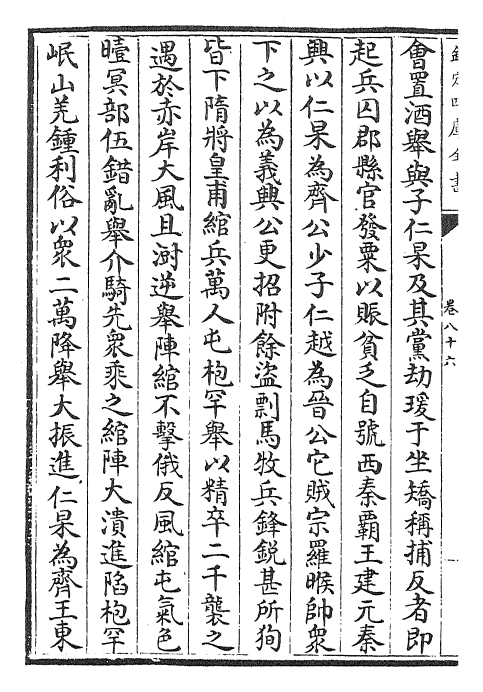 欽定四庫全書
卷八十六
會置酒舉與子仁杲及其黨劫瑗于坐矯稱捕反者即
起兵囚郡縣官發粟以賑貧乏自號西秦霸王建元秦
興以仁杲為齊公少子仁越為晉公它賊宗羅睺帥衆
下之以為義興公更招附餘盗剽馬牧兵鋒鋭甚所徇
皆下隋將皇甫綰兵萬人屯枹罕舉以精卒二千襲之
遇於赤岸大風且澍逆舉陣綰不擊俄反風綰屯氣色
曀冥部伍錯亂舉介騎先衆乘之綰陣大潰進陷枹罕
岷山羌鍾利俗以衆二萬降舉大振進仁杲為齊王東